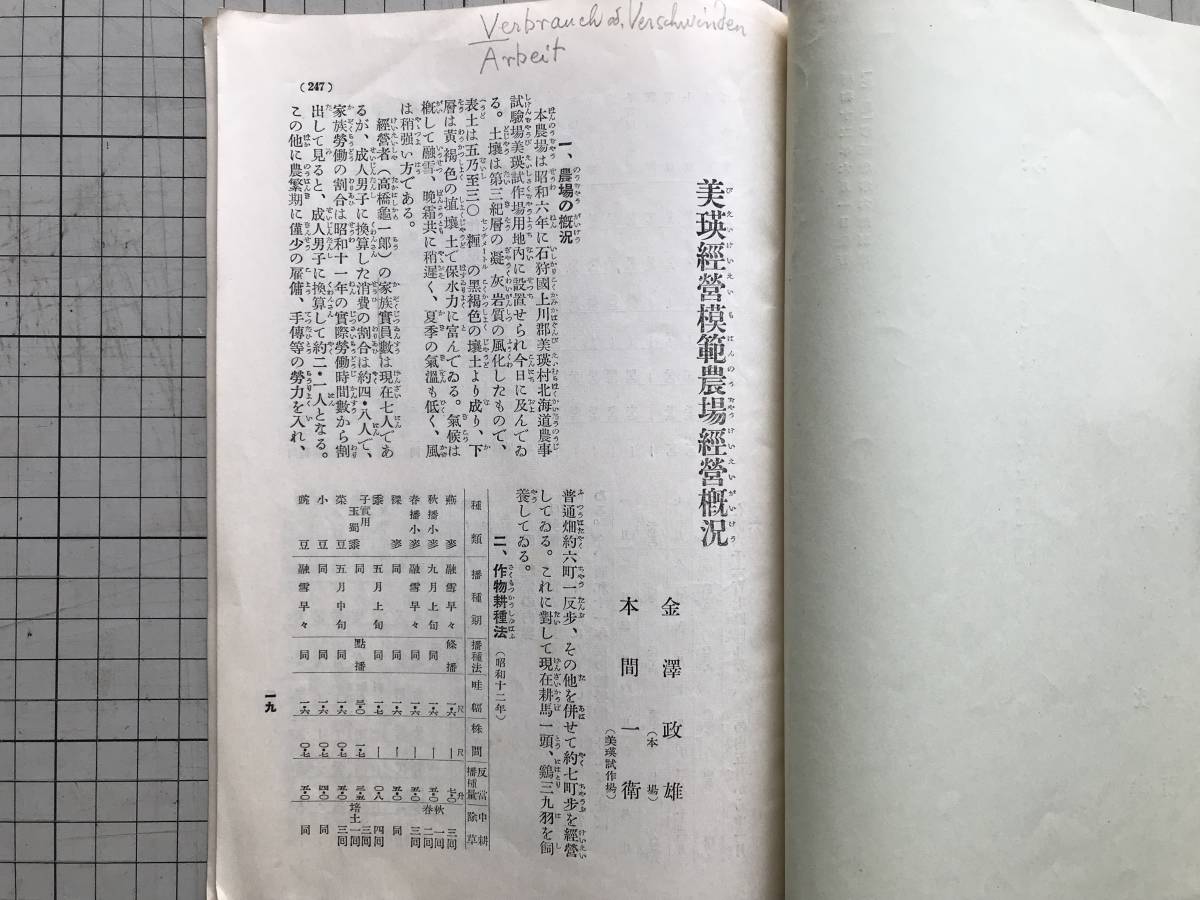 Verbrauch od. Verschwinden
Arbeit
(247)
美瑛經營模範農場經營概況
金澤政雄
(本場)
本間一衛
(美瑛試作場)
一、農場の概況
本農場は昭和六年に石狩國上川郡美瑛村北海道農事
試驗場美瑛試作場用地内に設置せられ今日に及んでゐ
る。土壤は第三紀層の凝灰岩質の風化したもので、
表土は五乃至三〇糎の黑褐色の壤土より成り、下
層は黃褐色の埴壤土で保水力に富んでゐる。氣候は
槪して融雪、晩霜共に稍遲く、夏季の氣溫も低く、風
は稍强い方である。
經營者(高橋龜一郎)の家族實員數は現在七人であ
るが、成人男子に換算した消費の割合は約四・八人で、
家族勞働の割合は昭和十一年の實際勞働時間數から割
出して見ると、成人男子に換算して約二・一人となる。
この他に農繁期に僅少の雇傭、手傳等の勞力を入れ、
普通畑約六町一反步、その他を併せて約七町步を經營
してゐる。これに對して現在耕馬一頭、鷄三九羽を飼
養してゐる。
二、作物耕種法(昭和十二年)
種類 播種期 播種法 畦幅 株間 反當播種量 中耕除草
燕麥 融雪早々 條播 尺一・六 尺― 升七・〇 三回
秋播小麥 九月上旬 同 一・六 ― 五・〇 秋一回春二回
春播小麥 融雪早々 同 一・六 ― 五・〇 三回
裸麥 同 同 一・六 ― 五・〇 同
黍 五月上旬 同 一・七 ― 〇・八 四回
子實用玉蜀黍 同 點播 三・〇 一・七 三・五 三回培土一回
菜豆 五月中旬 同 一・六 〇・七 五・〇 三回
小豆 同 同 一・六 〇・七 四・〇 同
豌豆 融雪早々 同 一・六 〇・七 五・〇 同
一九